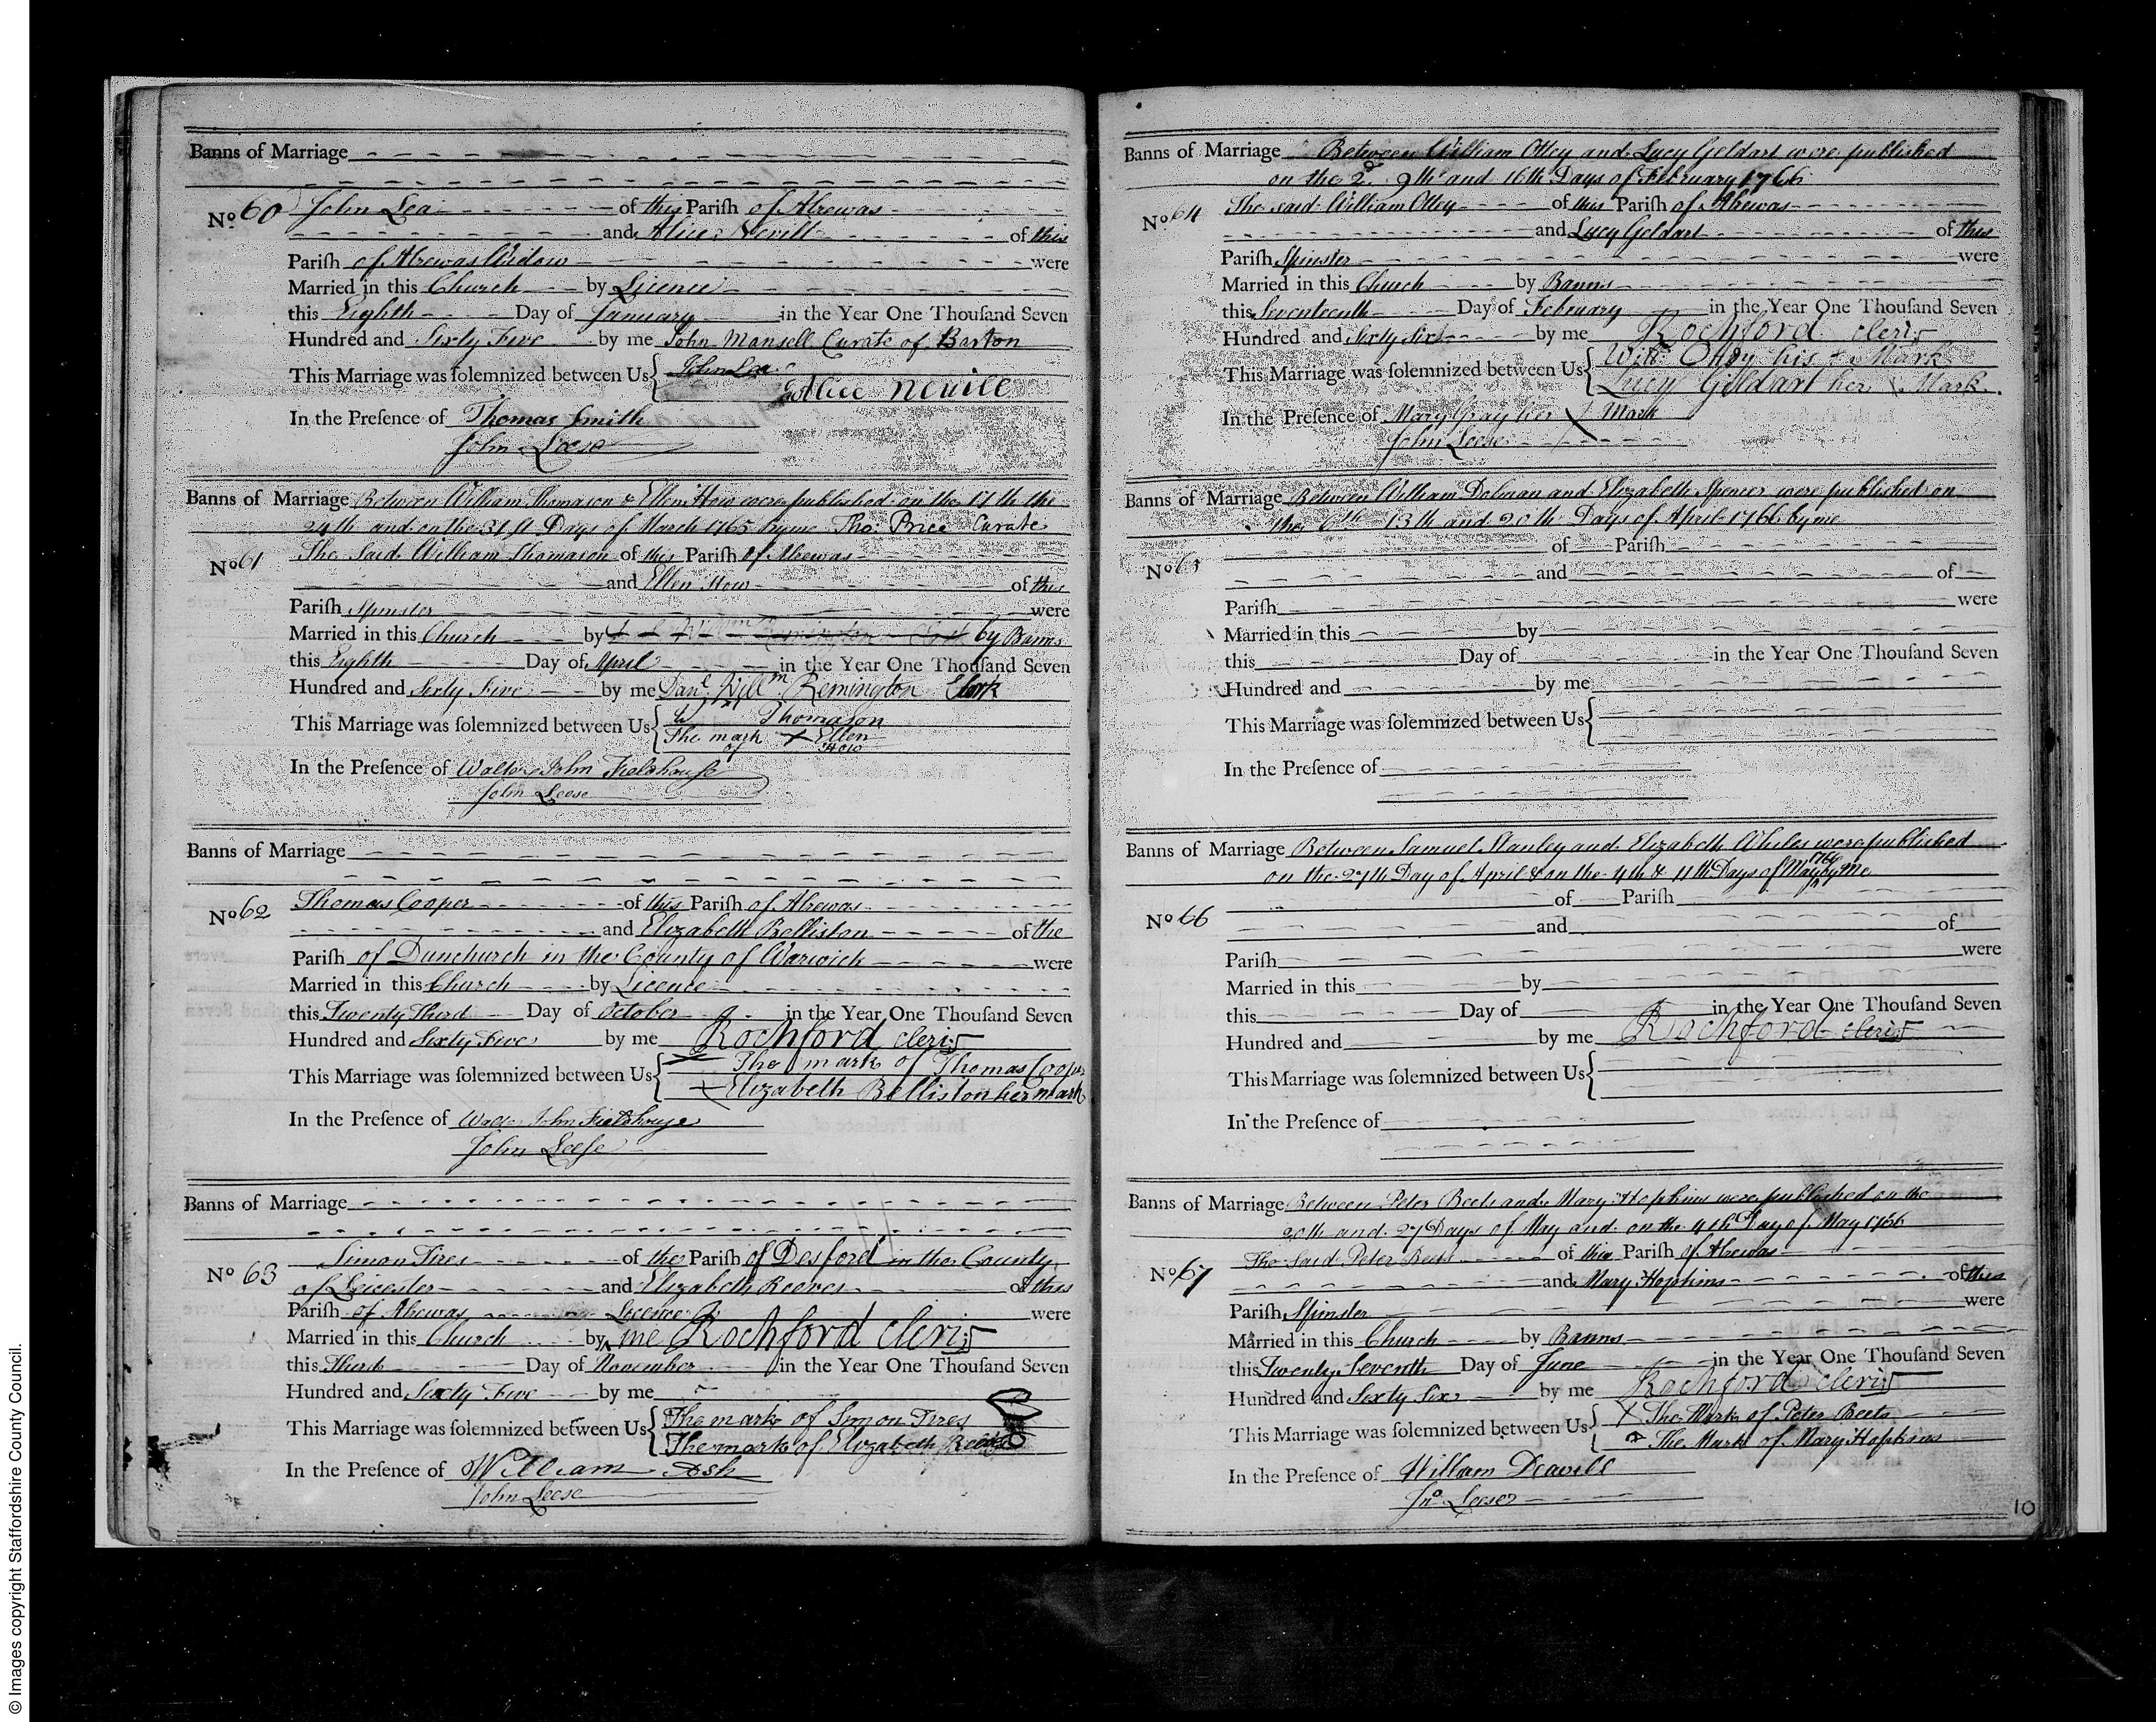 Banns of Marriage
No 60 John Lea of this Parish of Alrewas
and Alice Nevill of this
Parish of Alrewas Widow were
Married in this Church by Licence
this Eighth Day of January in the Year One Thouſand Seven
Hundred and Sixty Five by me John Mansell Curate of Barton
This Marriage was ſolemnized between Us John Lea
Allice Neuill
In the Preſence of Thomas Smith
John Leese
Banns of Marriage Between William Thomason & Ellen How were published on the 17th the
24th and on the 31st Days of March 1765 by me Tho. Price Curate
No 61 The Said William Thomason of this Parish of Alrewas
and Ellen How of this
Parish Spinster were
Married in this Church by by Banns
this Eighth Day of April in the Year One Thouſand Seven
Hundred and Sixty Five by me Danl. Willm. Remington Clerk
This Marriage was ſolemnized between Us Wm Thomason
The mark of + Ellen How
In the Preſence of Walter John Fieldhouse
John Leese
Banns of Marriage
No 62 Thomas Cooper of this Parish of Alrewas
and Elizabeth Belliston of the
Parish of Dunchurch in the County of Warwick were
Married in this Church by Licence
this Twenty Third Day of October in the Year One Thouſand Seven
Hundred and Sixty Five by me Rochford cleric
This Marriage was ſolemnized between Us The mark of Thomas Cooper
+ Elizabeth Belliston her mark
In the Preſence of Walter John Fieldhouse
John Leeſe
Banns of Marriage
No 63 Simon Tires of the Parish of Desford in the County
of Leicester and Elizabeth Reeves of this
Parish of Alrewas Licence were
Married in this Church by me Rochford cleric
this Third Day of November in the Year One Thouſand Seven
Hundred and Sixty Five by me
This Marriage was ſolemnized between Us The mark of Simon Tires
The mark of Elizabeth Reeves
In the Preſence of William Ash
John Leese
Banns of Marriage Between William Ottey and Lucy Geldart were published
on the 2d 9th and 16th Days of February 1766
No 64 The said William Ottey of this Parish of Alrewas
and Lucy Geldart of this
Parish Spinster were
Married in this Church by Banns
this Seventeenth Day of February in the Year One Thouſand Seven
Hundred and Sixty Six by me Rochford cleric
This Marriage was ſolemnized between Us Will. Ottey his + Mark
Lucy Geldart her Mark
In the Preſence of Mary Gray her Mark
John Leese
Banns of Marriage Between William Dolman and Elizabeth Spencer were published on
the 6th 13th and 20th Days of April 1766 by me
No 65 of Parish
and of
Parish were
Married in this by
this Day of in the Year One Thouſand Seven
Hundred and by me
This Marriage was ſolemnized between Us
In the Preſence of
Banns of Marriage Between Samuel Stanley and Elizabeth were published
on the 27th Day of April & on the 4th & 11th Days of May 1766 by Me
No 66 of Parish
and of
Parish were
Married in this by
this Day of in the Year One Thouſand Seven
Hundred and by me Rochford cleric
This Marriage was ſolemnized between Us
In the Preſence of
Banns of Marriage Between Peter Beets and Mary Hopkins were published on the
20th and 27 Days of May and on the 4th Day of May 1766
No 67 The Said Peter Beets of this Parish of Alrewas
and Mary Hopkins of this
Parish Spinster were
Married in this Church by Banns
this Twenty Seventh Day of June in the Year One Thouſand Seven
Hundred and Sixty Six by me Rochford cleric
This Marriage was ſolemnized between Us X The Mark of Peter Beets
The Mark of Mary Hopkins
In the Preſence of William Deavill
Jno. Leese
10
© Images copyright Staffordshire County Council.